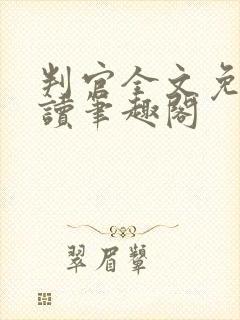 判官全文免
讀筆趣閣
翠眉顰